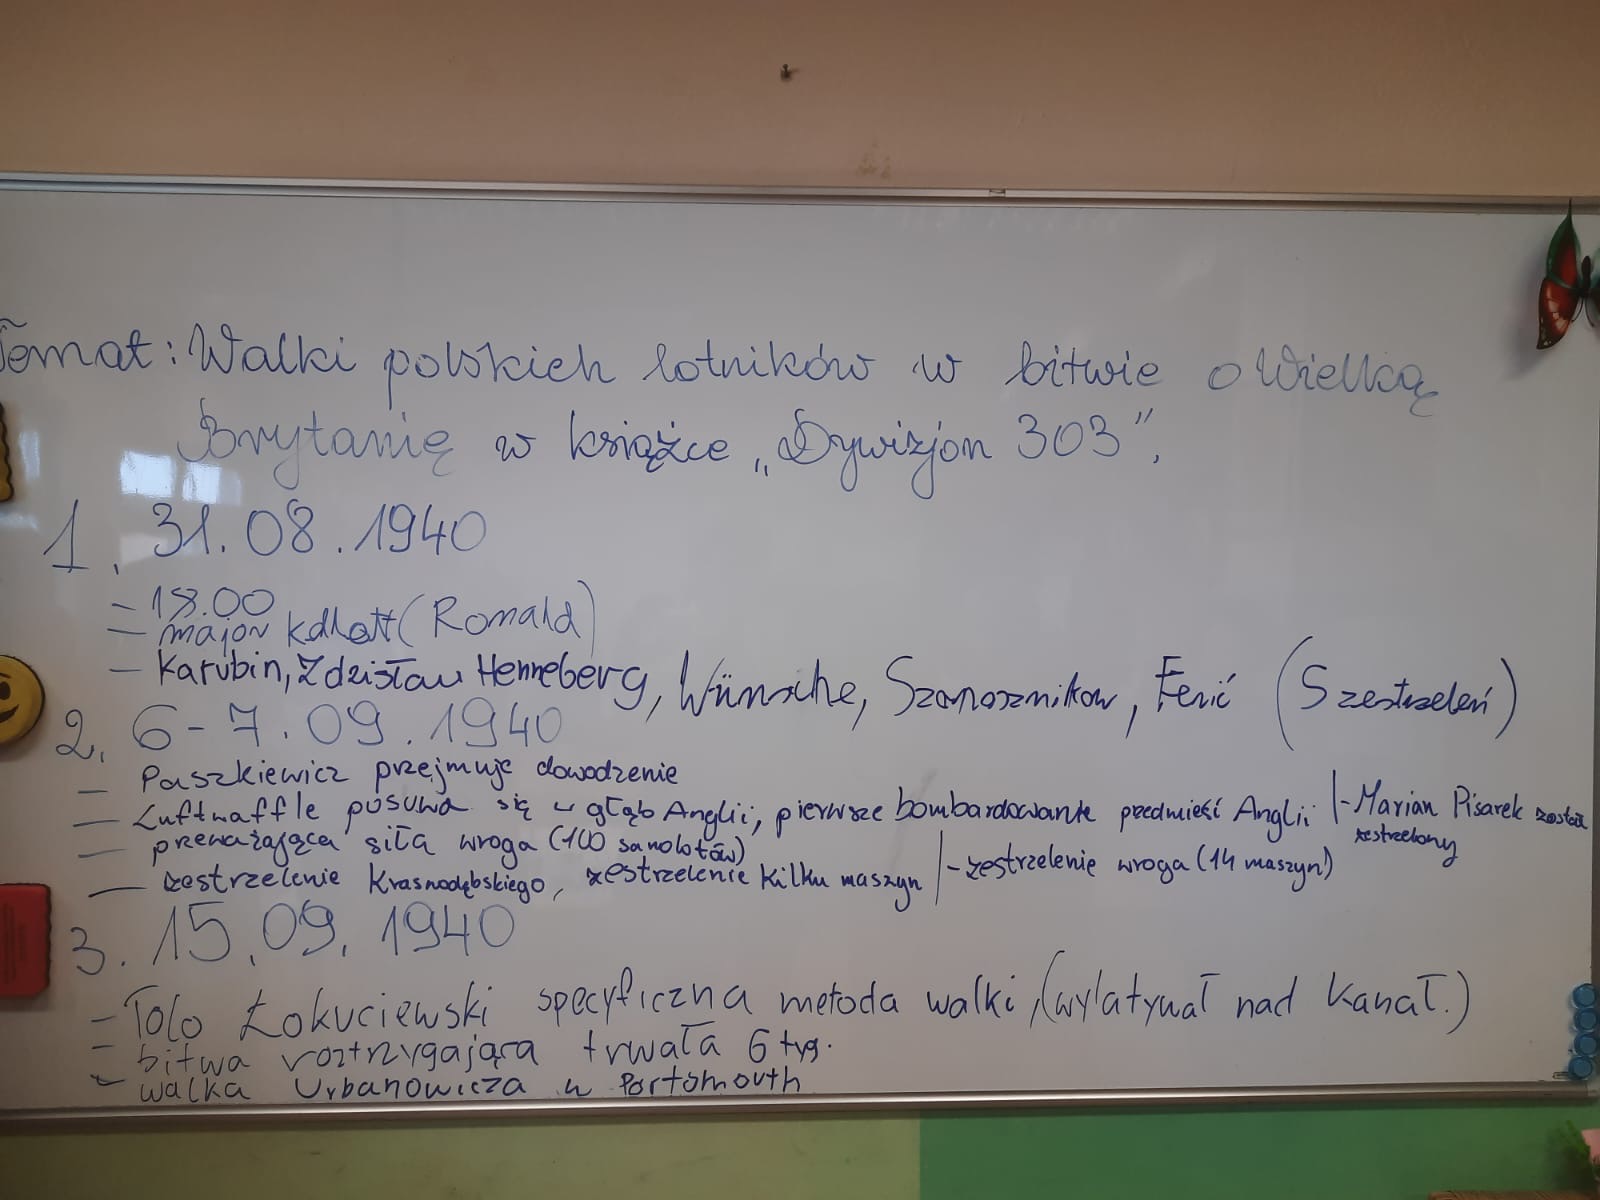 Temat: Walki polskich lotników w bitwie o Wielką
Brytanię w książce „Dywizjon 303”.
1. 31.08.1940
- 18.00
- major Kellett (Ronald)
- Karubin, Zdzisław Henneberg, Wünsche, Szaposznikow, Ferić (5 zestrzeleń)
2. 6-7.09.1940
- Paszkiewicz przejmuje dowodzenie
- Luftwaffle posuwa się w głąb Anglii, pierwsze bombardowanie przedmieść Anglii |- Marian Pisarek został zestrzelony
- przeważająca siła wroga (100 samolotów)
- zestrzelenie Krasnodębskiego, zestrzelenie kilku maszyn |- zestrzelenie wroga (14 maszyn)
3. 15.09.1940
- Tolo Łokuciewski specyficzna metoda walki, (wylatywał nad Kanał.)
- bitwa roztrzygająca trwała 6 tyg.
- walka Urbanowicza w Portsmouth